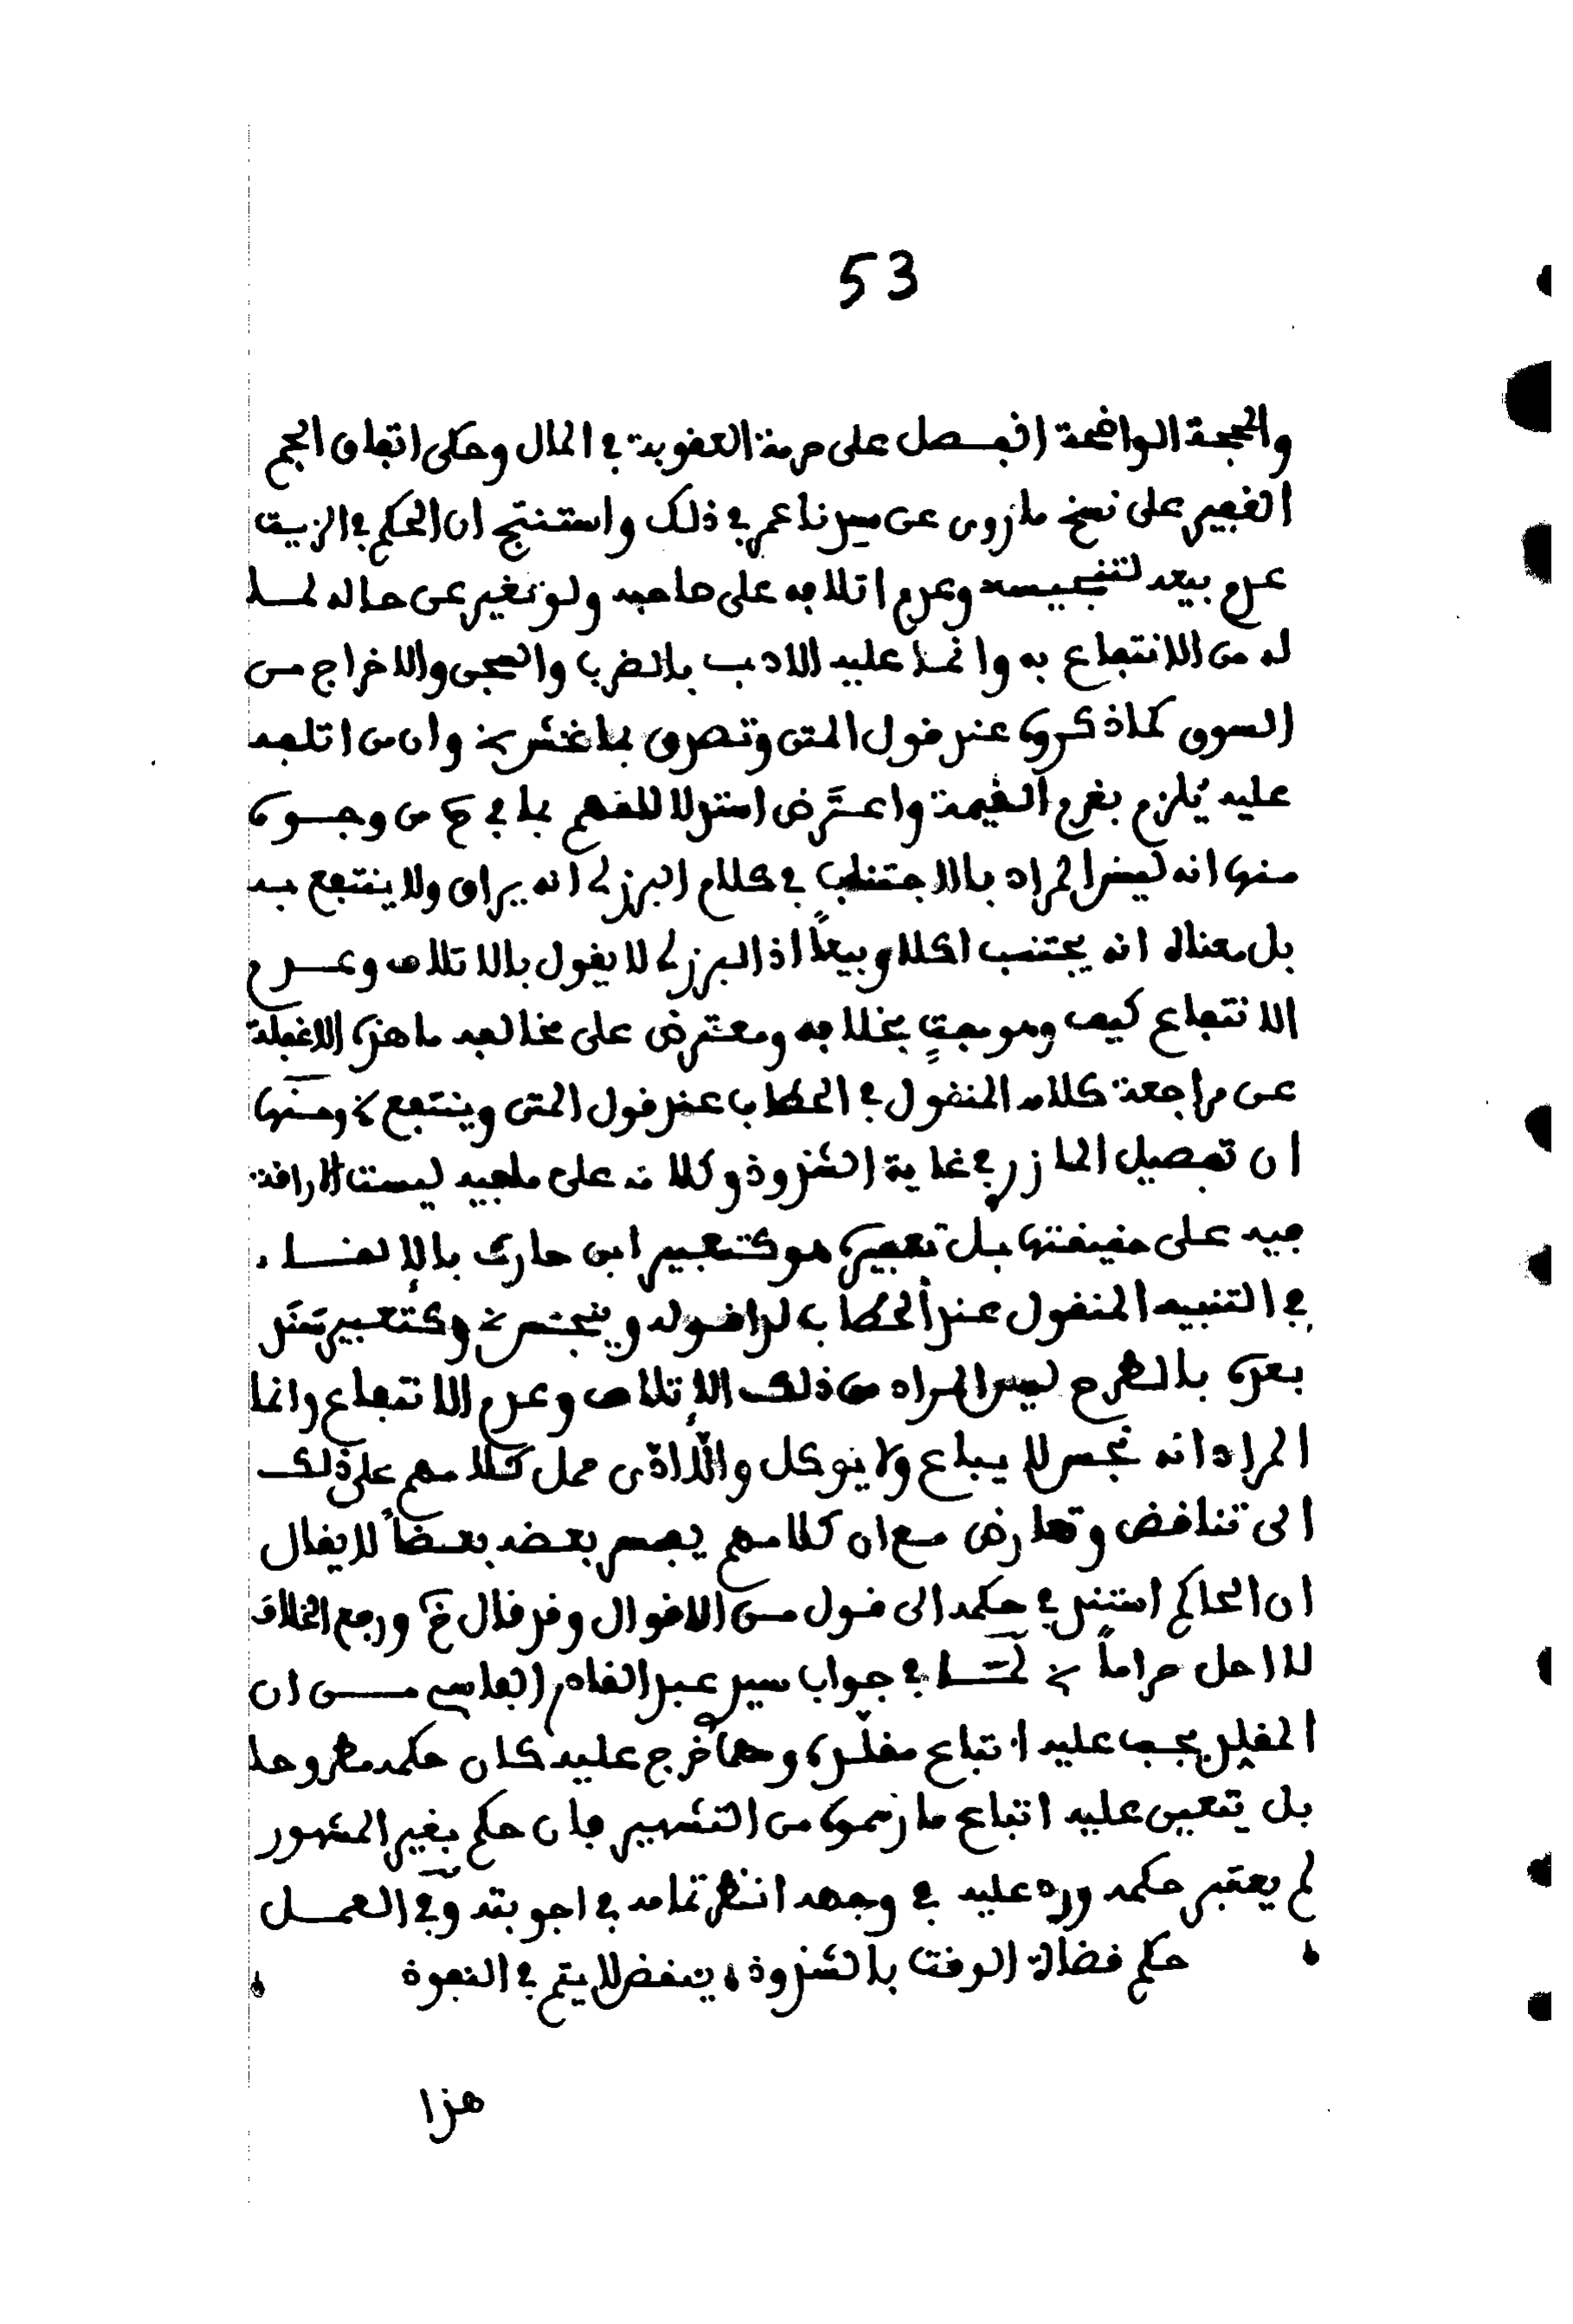 53
والحجة الواضحة الفصل على حرمة العقوبة في المال وحكى اتفاق الجم
الغفير على نسخ ما روى عن سيدنا عمر في ذلك واستنتج ان الحكم في الزيت
عدم بيعه لتنجيسه وعدم اتلافه على صاحبه ولو تغير عن حاله لمــا
له من الانتفاع به وانما عليه الادب بالضرب والسجن والاخراج من
السوق كما ذكروه عند قول المتن وتصدق بما غش الخ وان من اتلفه
عليه يُلزم بغرم القيمة واعترض استدلالهم بما في من وجوه
منها انه ليس المراد بالاجتناب في كلام البرزلي انه يراق ولا ينتفع بــه
بل معناه انه يجتنب اكلا وبيعاً اذ البرزلي لا يقول بالاتلاف وعــدم
الانتفاع كيف وهو مفتٍ بخلافه ومعترض على مخالفه ما هذه الاغفلة
عن مراجعة كلامه المنقول في الحطاب عند قول المتن وينتفع الخ ومنها
ان تفصيل المازري في غاية الشذوذ وكلامه على ما فيه ليست الاراقة
فيه على حقيقتها بل تعبيره هو كتعبير ابن حارث بالإلقــاء
في التنبيه المنقول عند الحطاب لدا قوله وينجس الخ وكتعبير مَن
بعده بالطرح ليس المراد من ذلك الإتلاف وعدم الانتفاع وانما
المراد انه نجس لا يباع ولا يوكل والا ادّى محمل كلامهم على ذلك
الى تناقض وتعارض مع ان كلامهم يفسر بعضه بعضاً لا يقال
ان الحاكم استند في حكمه الى قول من الاقوال وقد قال خ ورفع الخلاف
لا احل حراماً الخ لمــا في جواب سيدي عبد القادر الفاسي مــن ان
المقلد يجب عليه اتباع مقلده ومهما خرج عليه كان حكمه مطروحا
بل يتعين عليه اتباع ما رسموه من التشهير فان حكم بغير المشهور
لم يعتبر حكمه ورد عليه في وجهه انظر تمامه في اجوبته وفي العمــل
حكم قضاة الوقت بالشذوذ ، ينقض لا يتم في النفوذ
هذا